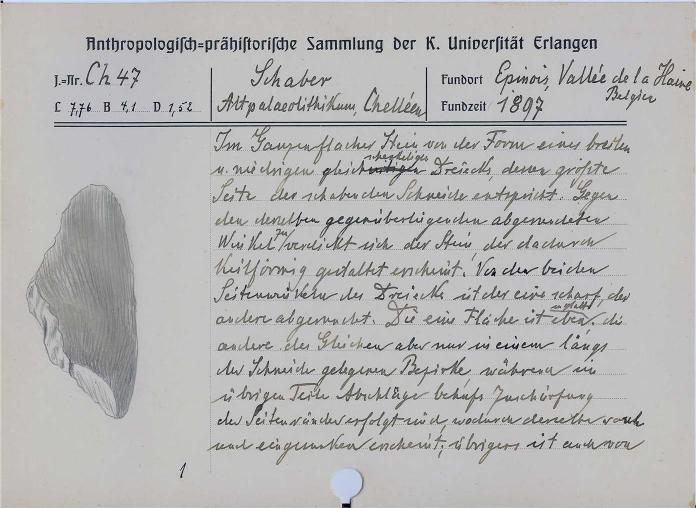 Anthropologisch=prähistorische Sammlung der K. Universität Erlangen
J.=Nr. Ch 47
L 7,76 B 4,1 D 1,52
Schaber
Altpalaeolithikum, Chelléen
Fundort Epinois, Vallée de la Haine
Belgien
Fundzeit 1897
Im Ganzen flacher Stein von der Form eines breiten
u. niedrigen gleichschenkeligen Dreiecks, deren größte
Seite der schabenden Schneide entspricht. Gegen
den derselben gegenüberliegenden abgerundeten
Winkel zu verdickt sich der Stein, der dadurch
keilförmig gestaltet erscheint. Von den beiden
Seitenwinkeln des Dreiecks ist der eine scharf, der
andere abgerundet. Die eine Fläche ist eben, die
andere des Gleichen aber nur in einem längs
der Schneide gelegenen Bezirke während im
übrigen Teile Abschläge behufs Zuschärfung
der Seitenränder erfolgt sind, wodurch derselbe
und erscheint; übrigens ist auch von
1